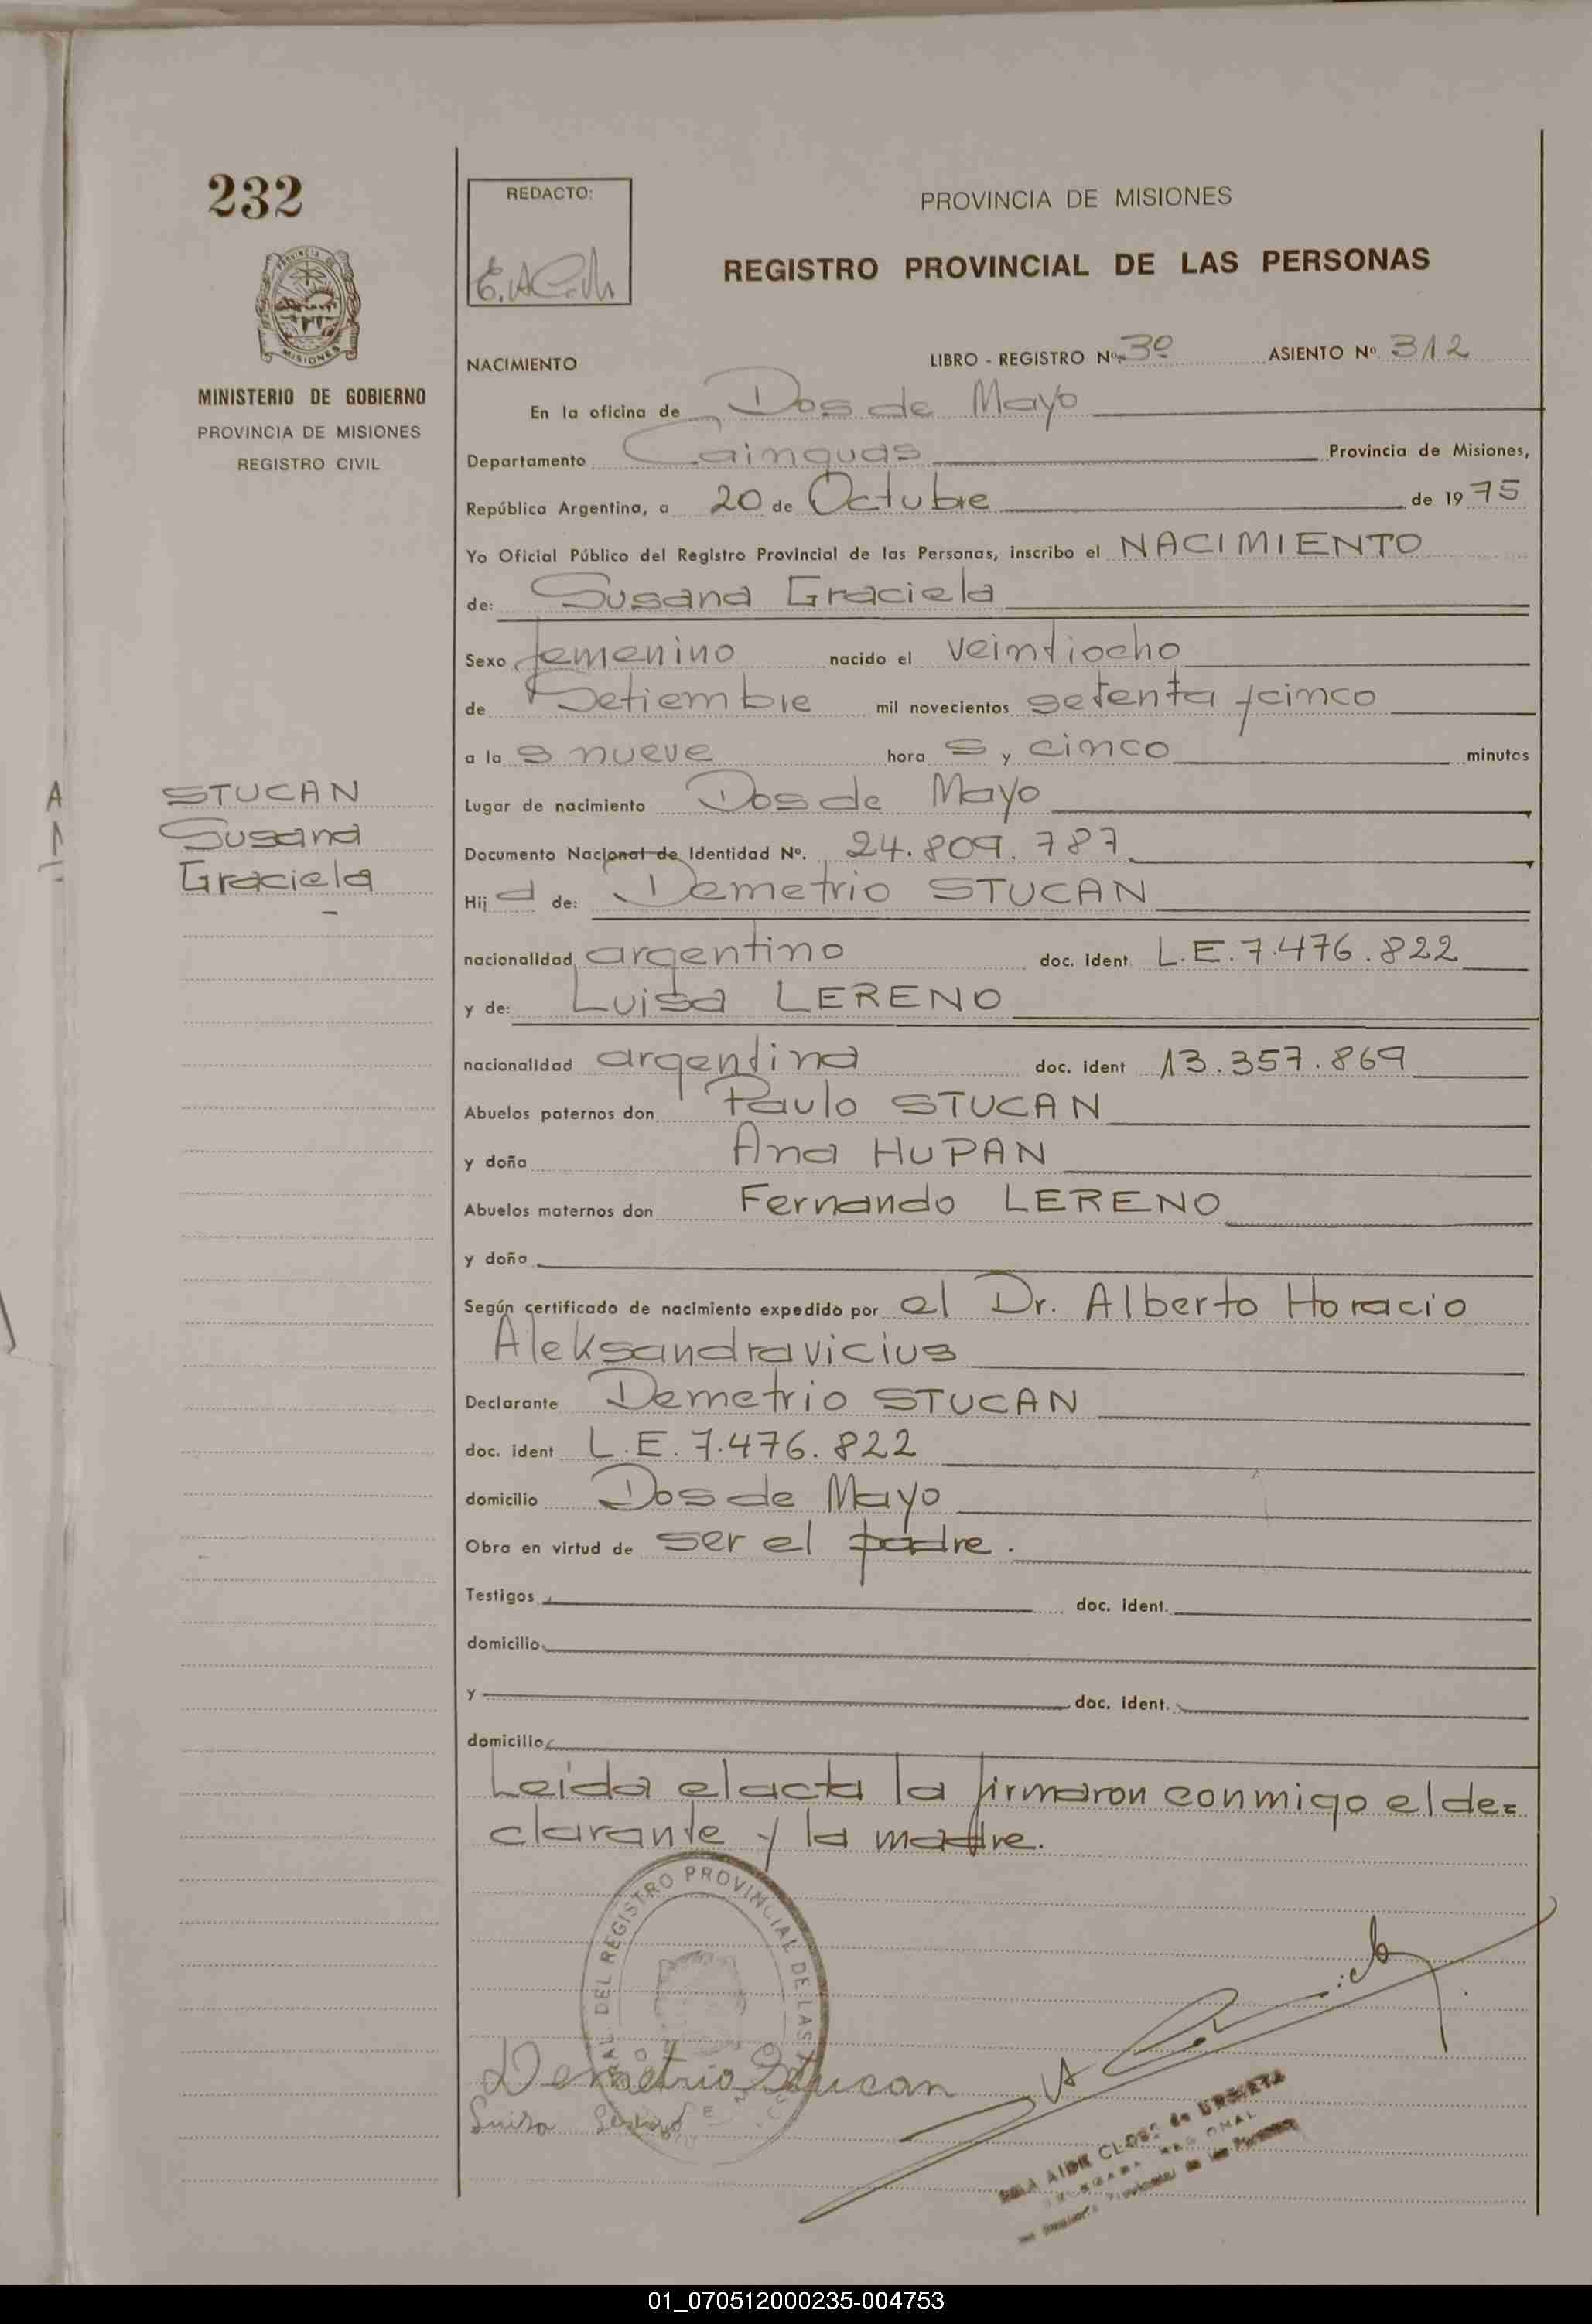 232
REDACTO:
PROVINCIA DE MISIONES
REGISTRO PROVINCIAL DE LAS PERSONAS
PROVINCIA DE
MISIONES
MINISTERIO DE GOBIERNO
PROVINCIA DE MISIONES
REGISTRO CIVIL
NACIMIENTO LIBRO - REGISTRO Nº 3º ASIENTO Nº 312
En la oficina de Dos de Mayo
Departamento Cainguas Provincia de Misiones,
República Argentina, a 20 de Octubre de 1975
Yo Oficial Público del Registro Provincial de las Personas, inscribo el NACIMIENTO
de: Susana Graciela
Sexo femenino nacido el veintiocho
de Setiembre mil novecientos setenta y cinco
a la s nueve hora s y cinco minutos
STUCAN
Susana
Graciela
Lugar de nacimiento Dos de Mayo
Documento Nacional de Identidad Nº. 24.809.787
Hij a de: Demetrio STUCAN
nacionalidad argentino doc. ident L.E. 7.476.822
y de: Luisa LERENO
nacionalidad argentina doc. ident 13.357.869
Abuelos paternos don Paulo STUCAN
y doña Ana HUPAN
Abuelos maternos don Fernando LERENO
y doña
Según certificado de nacimiento expedido por el Dr. Alberto Horacio
Aleksandravicius
Declarante Demetrio STUCAN
doc. ident L.E. 7.476.822
domicilio Dos de Mayo
Obra en virtud de ser el padre.
Testigos doc. ident.
domicilio
y doc. ident.
domicilio
Leida el acta la firmaron conmigo el de=
clarante y la madre.
DEL REGISTRO PROVINCIAL DE LAS
Demetrio Stucan
Luisa
AIDE CLOSS de URRUTIA
01_070512000235-004753